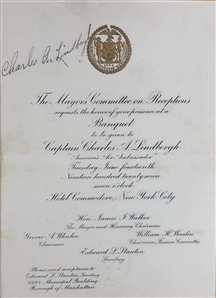 Charles A. Lindbergh
The Mayor's Committee on Receptions
requests the honor of your presence at a
Banquet
to be given to
Captain Charles A. Lindbergh
America's Air Ambassador
Tuesday, June fourteenth
Nineteen hundred twenty seven
seven o'clock
Hotel Commodore, New York City
Hon. James J. Walker
The Mayor and Honorary Chairman
Grover A. Whalen
Chairman
William H. Woodin
Chairman, Finance Committee
Edward L. Stanton
Secretary
Please send acceptance to
Edward L. Stanton, Secretary
Municipal Building
Borough of Manhattan